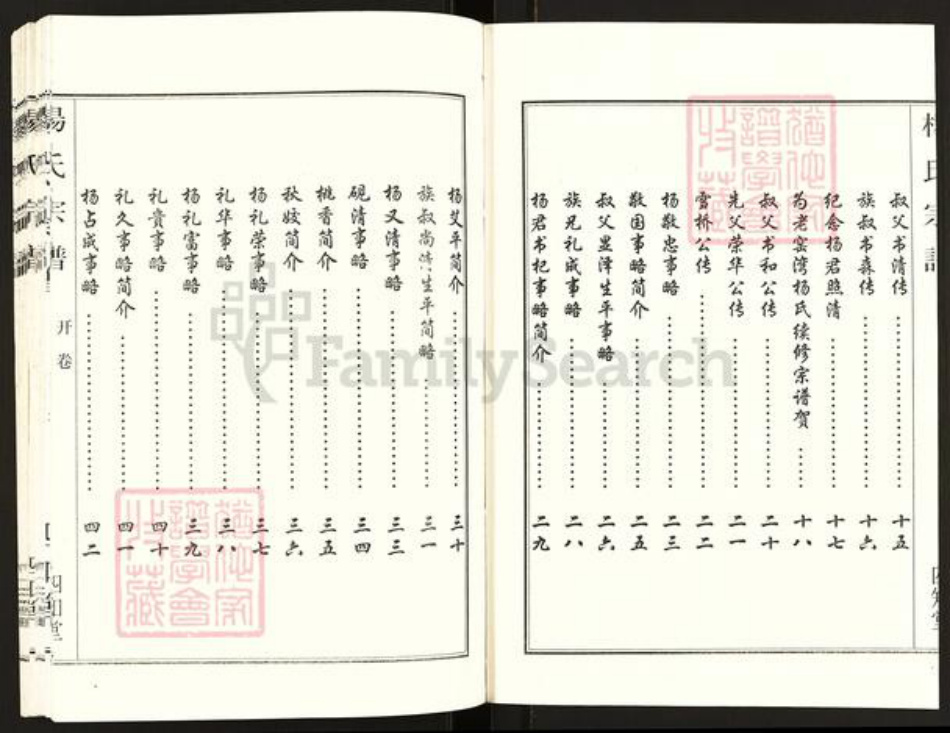 杨氏宗谱
叔父书清传……十五
族叔书森传……十六
纪念杨君照清……十七
为老窑湾杨氏续修宗谱贺……十八
叔父书和公传……二十
先父荣华公传……二一
雪桥公传……二二
杨敬忠事略……二三
敬国事略简介……二五
叔父显泽生平事略……二六
族兄礼成事略……二八
杨君书杞事略简介……二九
杨艾平简介……三十
族叔尚清生平简略……三一
杨又清事略……三三
砚清事略……三四
桃香简介……三五
秋姣简介……三六
杨礼荣事略……三七
礼华事略……三八
杨礼富事略……三九
礼贵事略……四十
礼久事略简介……四一
杨占成事略……四二
杨氏宗谱
开卷
四知堂
FamilySearch